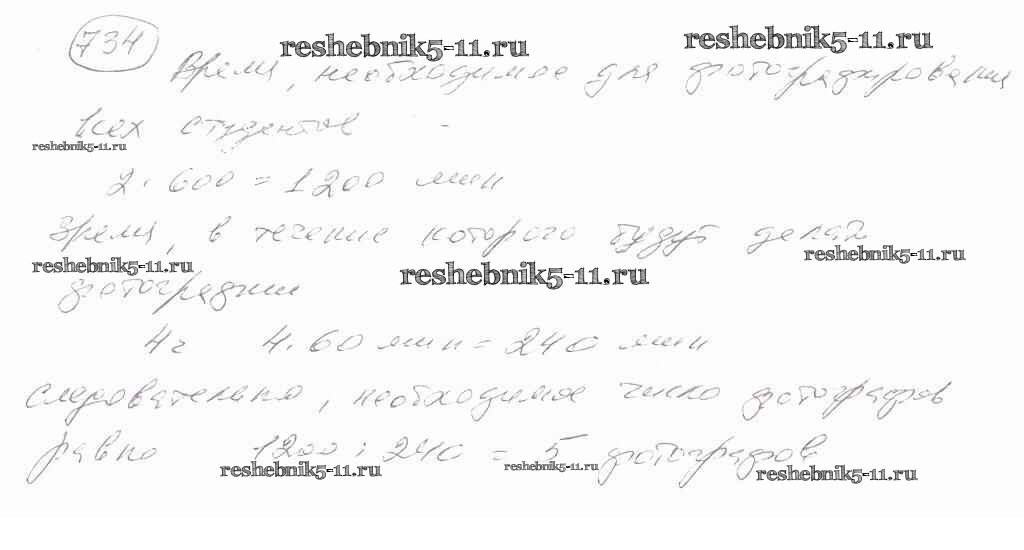 734 reshebnik5-11.ru reshebnik5-11.ru
Время, необходимое для фотографирования
всех студентов -
reshebnik5-11.ru
2 · 600 = 1200 мин
Время, в течение которого будут делать
reshebnik5-11.ru reshebnik5-11.ru reshebnik5-11.ru
фотографии
4ч 4·60 мин = 240 мин
следовательно, необходимое число фотографов
равно 1200 : 240 = 5 фотографов
reshebnik5-11.ru reshebnik5-11.ru reshebnik5-11.ru